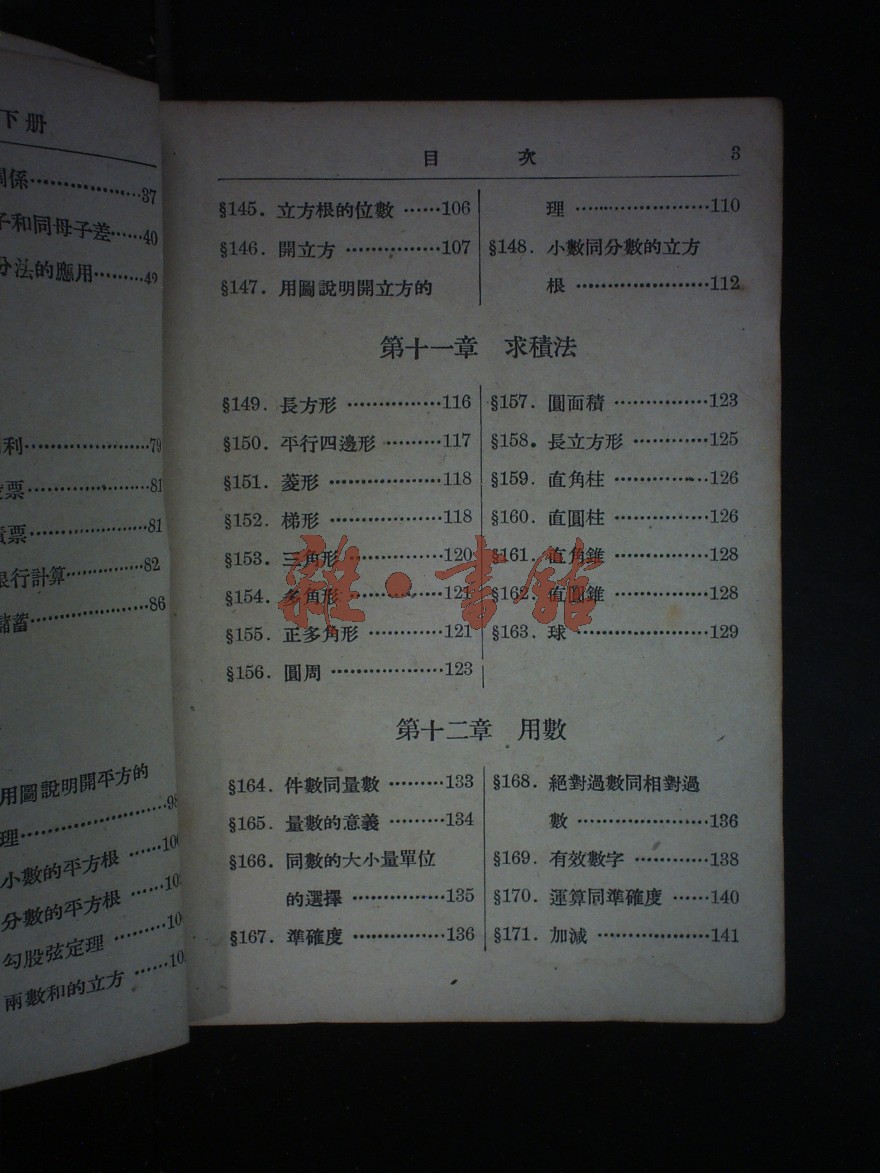 下册
係……37
和同母子差……40
分法的應用……49
利……79
票……81
票……81
銀行計算……82
儲蓄……86
用圖說明開平方的
理……98
小數的平方根……
分數的平方根……
勾股弦定理……
兩數和的立方……
目 次 3
§145. 立方根的位數……106
§146. 開立方……107
§147. 用圖說明開立方的
理……110
§148. 小數同分數的立方
根……112
第十一章 求積法
§149. 長方形……116
§150. 平行四邊形……117
§151. 菱形……118
§152. 梯形……118
§153. 三角形……120
§154. 多角形……121
§155. 正多角形……121
§156. 圓周……123
§157. 圓面積……123
§158. 長立方形……125
§159. 直角柱……126
§160. 直圓柱……126
§161. 直角錐……128
§162. 直圓錐……128
§163. 球……129
雜·書館
第十二章 用數
§164. 件數同量數……133
§165. 量數的意義……134
§166. 同數的大小量單位
的選擇……135
§167. 準確度……136
§168. 絕對過數同相對過
數……136
§169. 有效數字……138
§170. 運算同準確度……140
§171. 加減……141